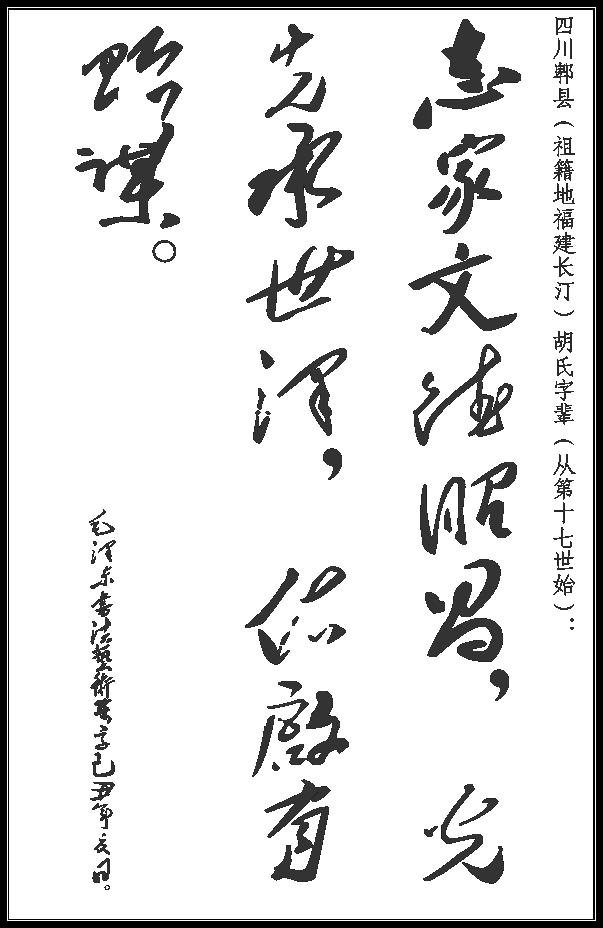 四川郫县（祖籍地福建长汀）胡氏字辈（从第十七世始）：
志家文德昭昌，光
先承世泽，佑啟有
贻谋。
毛泽东书法藝術集字己丑年夏日。